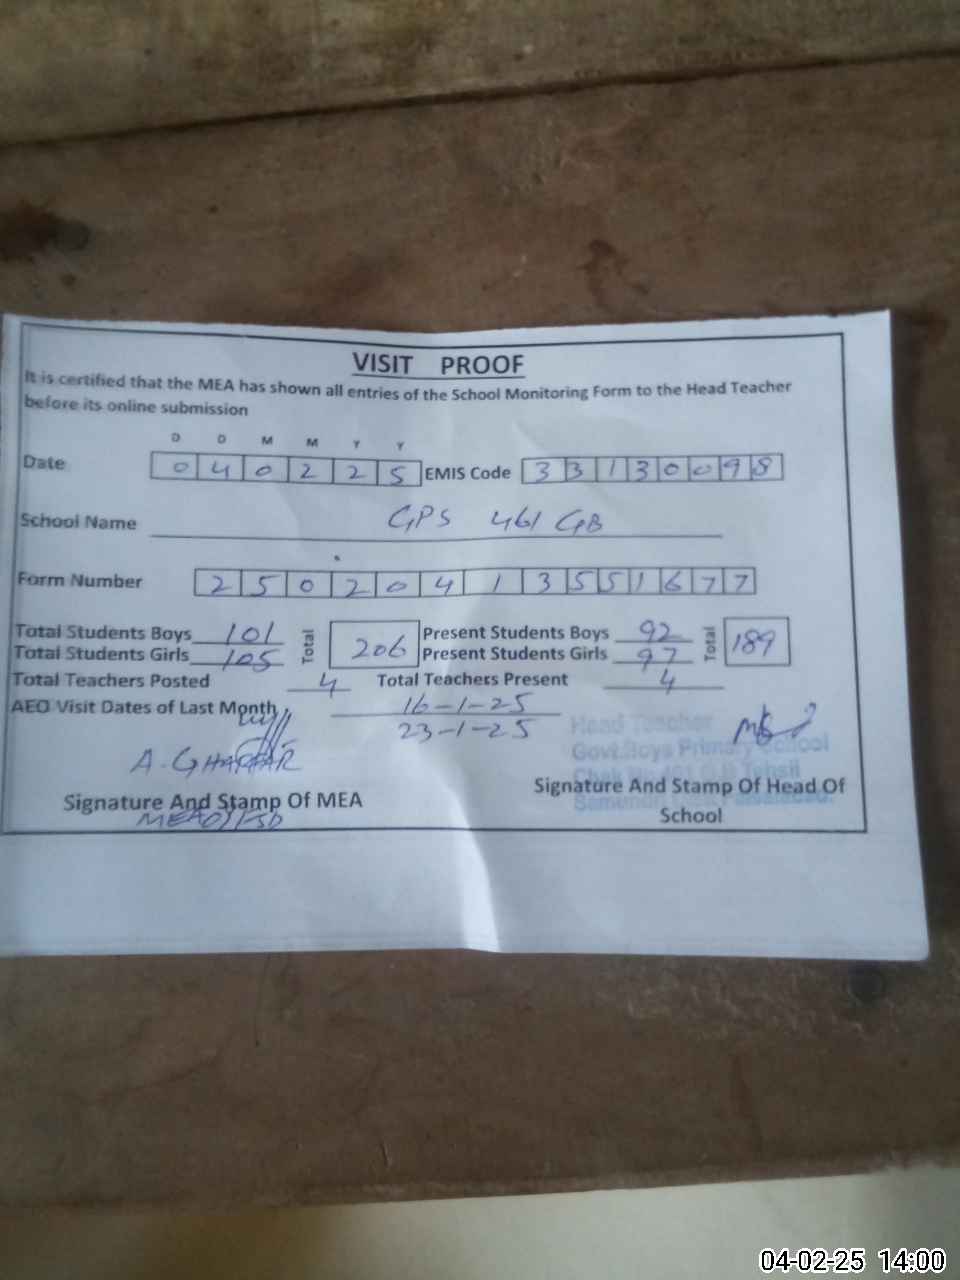 VISIT PROOF
It is certified that the MEA has shown all entries of the School Monitoring Form to the Head Teacher
before its online submission
D D M M Y Y
Date 0 4 0 2 2 5 EMIS Code 3 3 1 3 0 0 9 8
School Name GPS 461 GB
Form Number 2 5 0 2 0 4 1 3 5 5 1 6 7 7
Total Students Boys 101 Total 206 Present Students Boys 92 Total 189
Total Students Girls 105 Present Students Girls 97
Total Teachers Posted 4 Total Teachers Present 4
AEO Visit Dates of Last Month 16-1-25
23-1-25
Head Teacher
Govt.Boys Primary School
Tehsil
A. GHAFFAR
Signature And Stamp Of MEA
Signature And Stamp Of Head Of
School
04-02-25 14:00